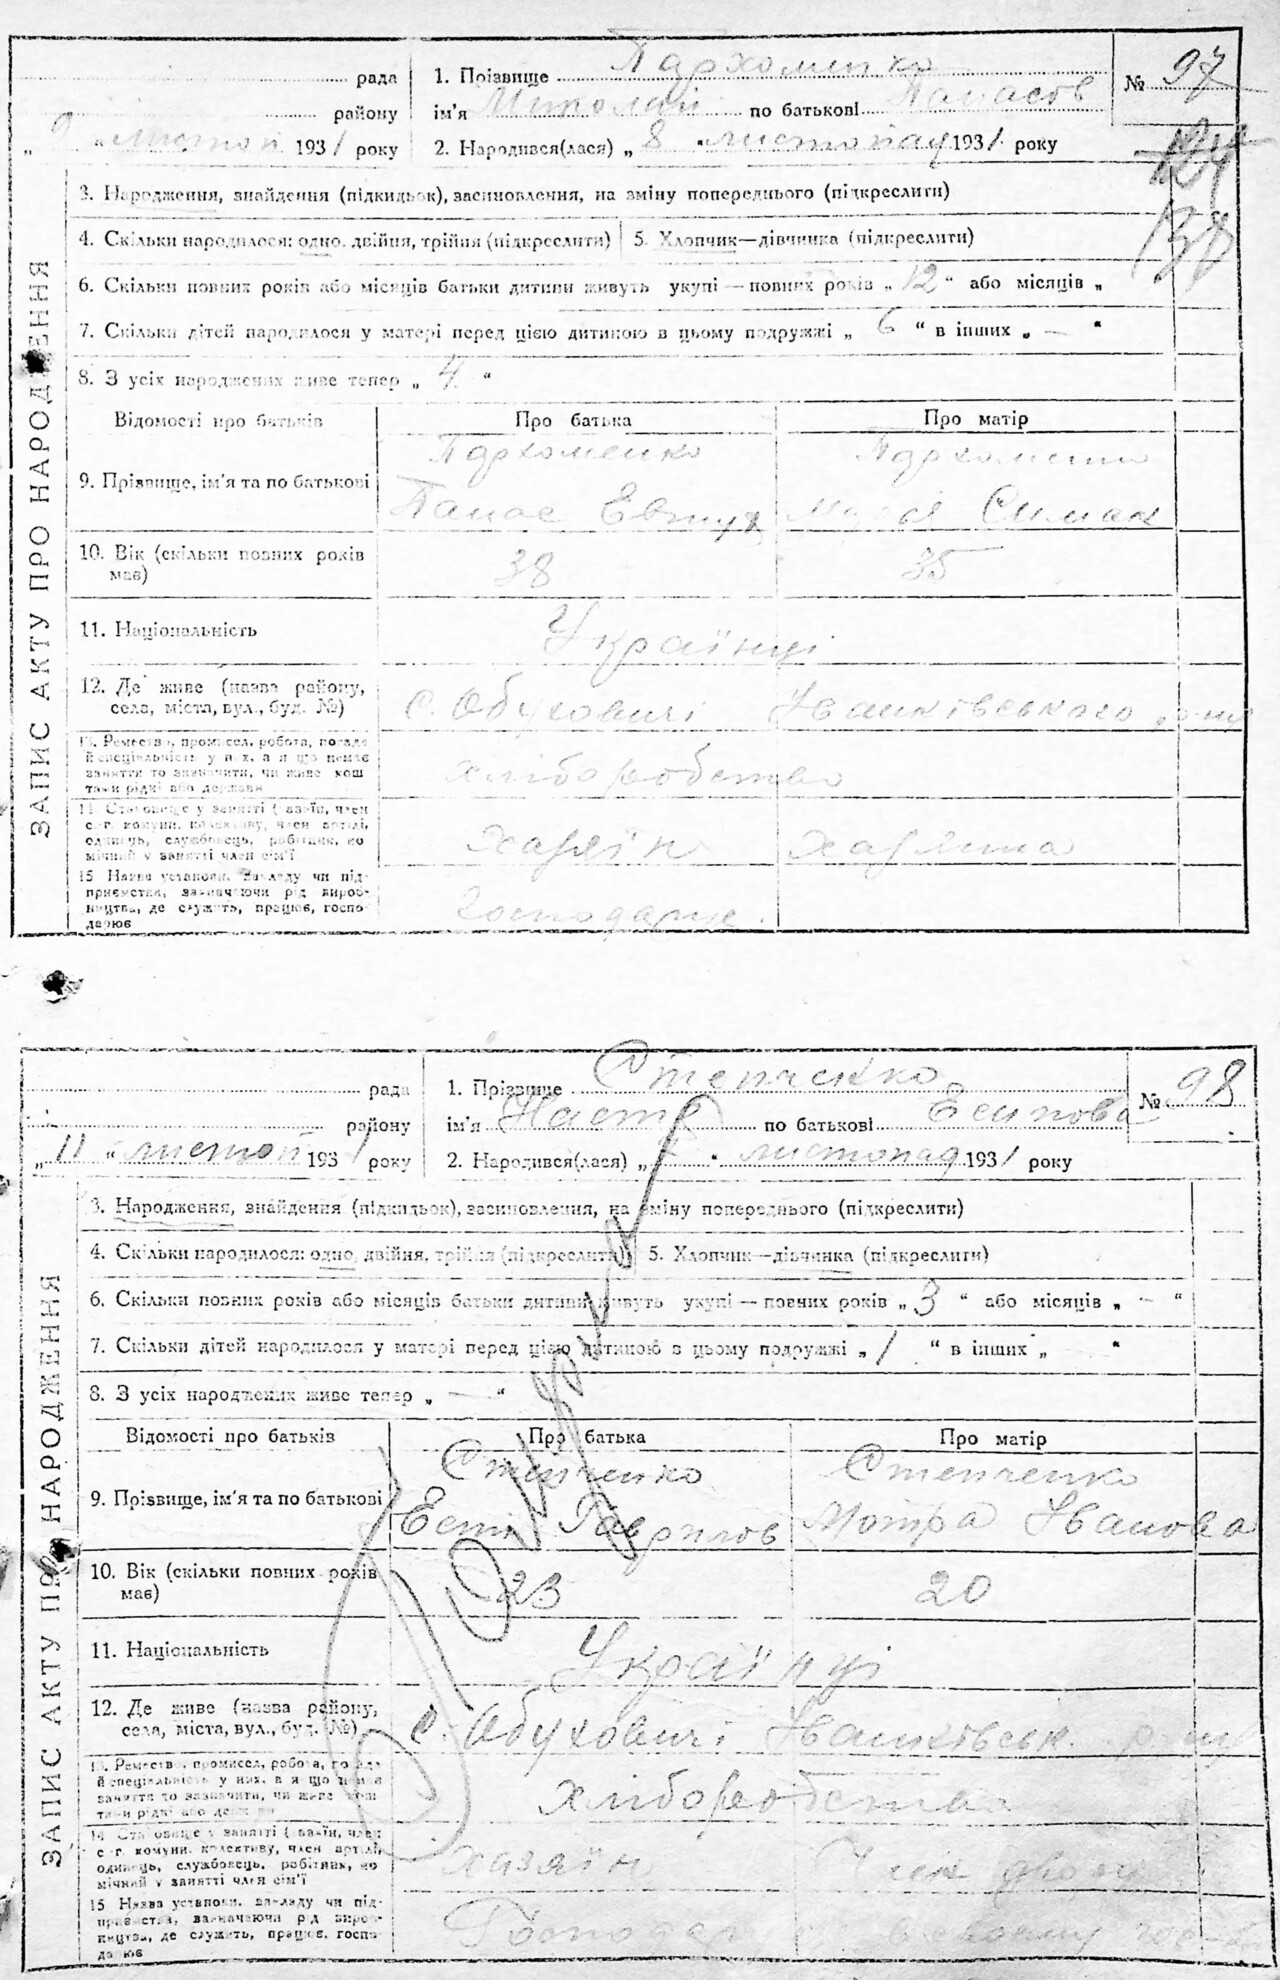 рада
1. Прізвище Пархоменко
№ 97
району
ім'я Миколай по батькові Панасов
„ 9 “ листоп 1931 року
2. Народився(лася) „ 8 “ листопад 1931 року
124
138
3. Народження, знайдення (підкидьок), засиновлення, на зміну попереднього (підкреслити)
4. Скільки народилося: одно, двійня, трійня (підкреслити)
5. Хлопчик—дівчинка (підкреслити)
6. Скільки повних років або місяців батьки дитини живуть укупі — повних років „ 12 “ або місяців „
7. Скільки дітей народилося у матері перед цією дитиною в цьому подружжі „ 6 “ в інших „ — “
8. З усіх народжених живе тепер „ 4 “
ЗАПИС АКТУ ПРО НАРОДЖЕННЯ
Відомості про батьків
Про батька
Про матір
9. Прізвище, ім'я та по батькові
Пархоменко
Панас
Пархоменко
Марія Симон
10. Вік (скільки повних років
має)
38
35
11. Національність
Українці
12. Де живе (назва району,
села, міста, вул., буд. №)
с. Обуховичі Іванківського р-ну
13. Ремество, промисел, робота, посада
й спеціяльність у них, а якщо немає
заняття то зазначити, чи живе кош
тами рідні або держави
хліборобство
14. Становище у занятті (хазяїн, член
с.-г. комуни, колективу, член артілі,
одинець, службовець, робітник, по
мічний у занятті член сім'ї
хазяїн
хазяйка
15 Назва установи, закладу чи під-
приємства, зазначаючи рід вироб-
ництва, де служить, працює, госпо-
дарює
Господарує.
рада
1. Прізвище Степченко
№ 98
району
ім'я Настя по батькові Есипова
„ 11 “ листоп 1931 року
2. Народився(лася) „ “ листопад 1931 року
3. Народження, знайдення (підкидьок), засиновлення, на зміну попереднього (підкреслити)
4. Скільки народилося: одно, двійня, трійня (підкреслити)
5. Хлопчик—дівчинка (підкреслити)
6. Скільки повних років або місяців батьки дитини живуть укупі — повних років „ 3 “ або місяців „ — “
7. Скільки дітей народилося у матері перед цією дитиною в цьому подружжі „ 1 “ в інших „ “
8. З усіх народжених живе тепер „ — “
ЗАПИС АКТУ ПРО НАРОДЖЕННЯ
Відомості про батьків
Про батька
Про матір
9. Прізвище, ім'я та по батькові
Степченко
Есип Гаврилов
Степченко
Мотря Іванова
10. Вік (скільки повних років
має)
23
20
11. Національність
Українці
12. Де живе (назва району,
села, міста, вул., буд. №)
с. Обуховичі Іванківськ. р-ну
13. Ремество, промисел, робота, посада
й спеціяльність у них, а якщо немає
заняття то зазначити, чи живе кош
тами рідні або держави
хліборобство
14 Становище у занятті (хазяїн, член
с.-г. комуни, колективу, член артілі,
одинець, службовець, робітник, по
мічний у занятті член сім'ї
хазяїн
Член двору
15 Назва установи, закладу чи під-
приємства, зазначаючи рід вироб-
ництва, де служить, працює, госпо-
дарює
своєму